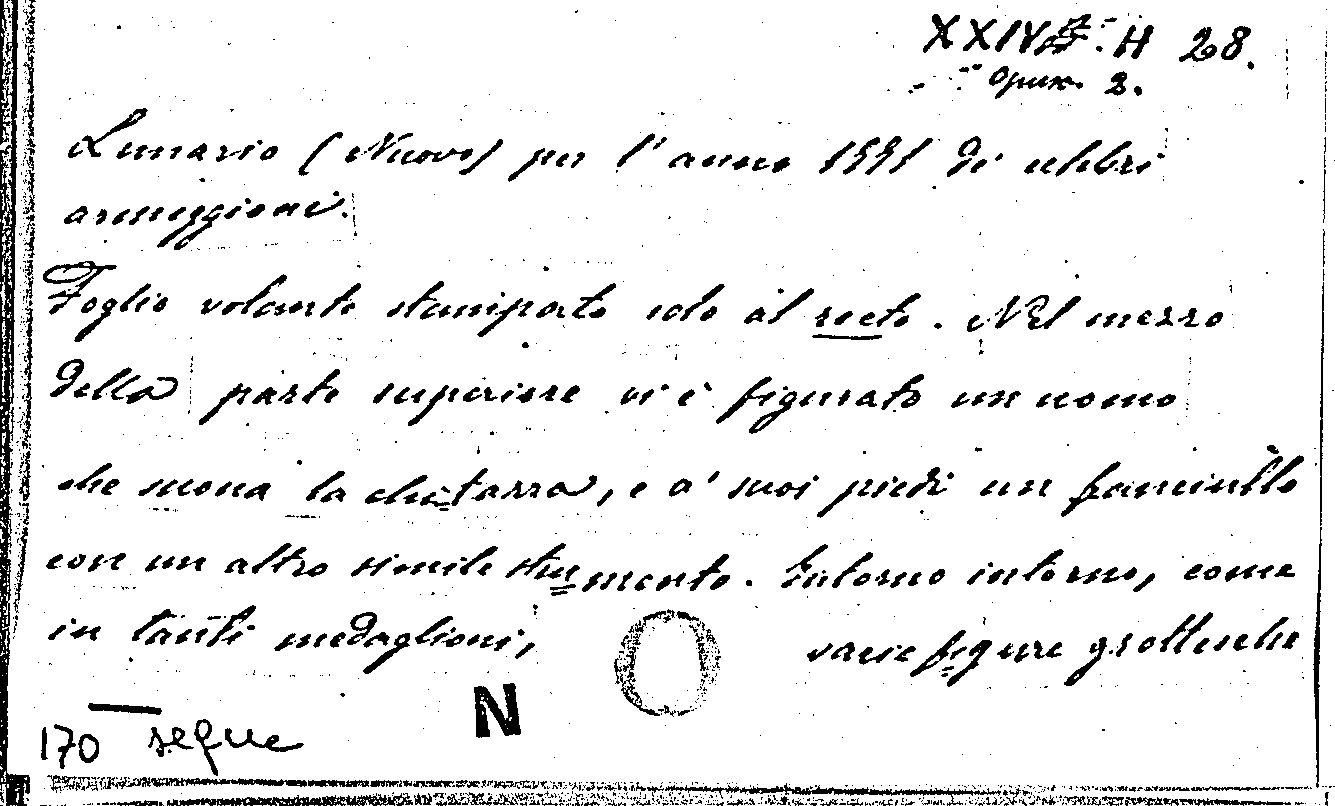 XXIV H 28.
Opusc. 2.
Lunario (Nuovo) per l'anno 1591 di celebri
armeggioni.
Foglio volante stampato solo al recto. Nel mezzo
della parte superiore vi è figurato un uomo
che suona la chitarra, e a' suoi piedi un fanciullo
con un altro simile strumento. Intorno intorno, come
in tanti medaglioni, varie figure grottesche
N
170 segue